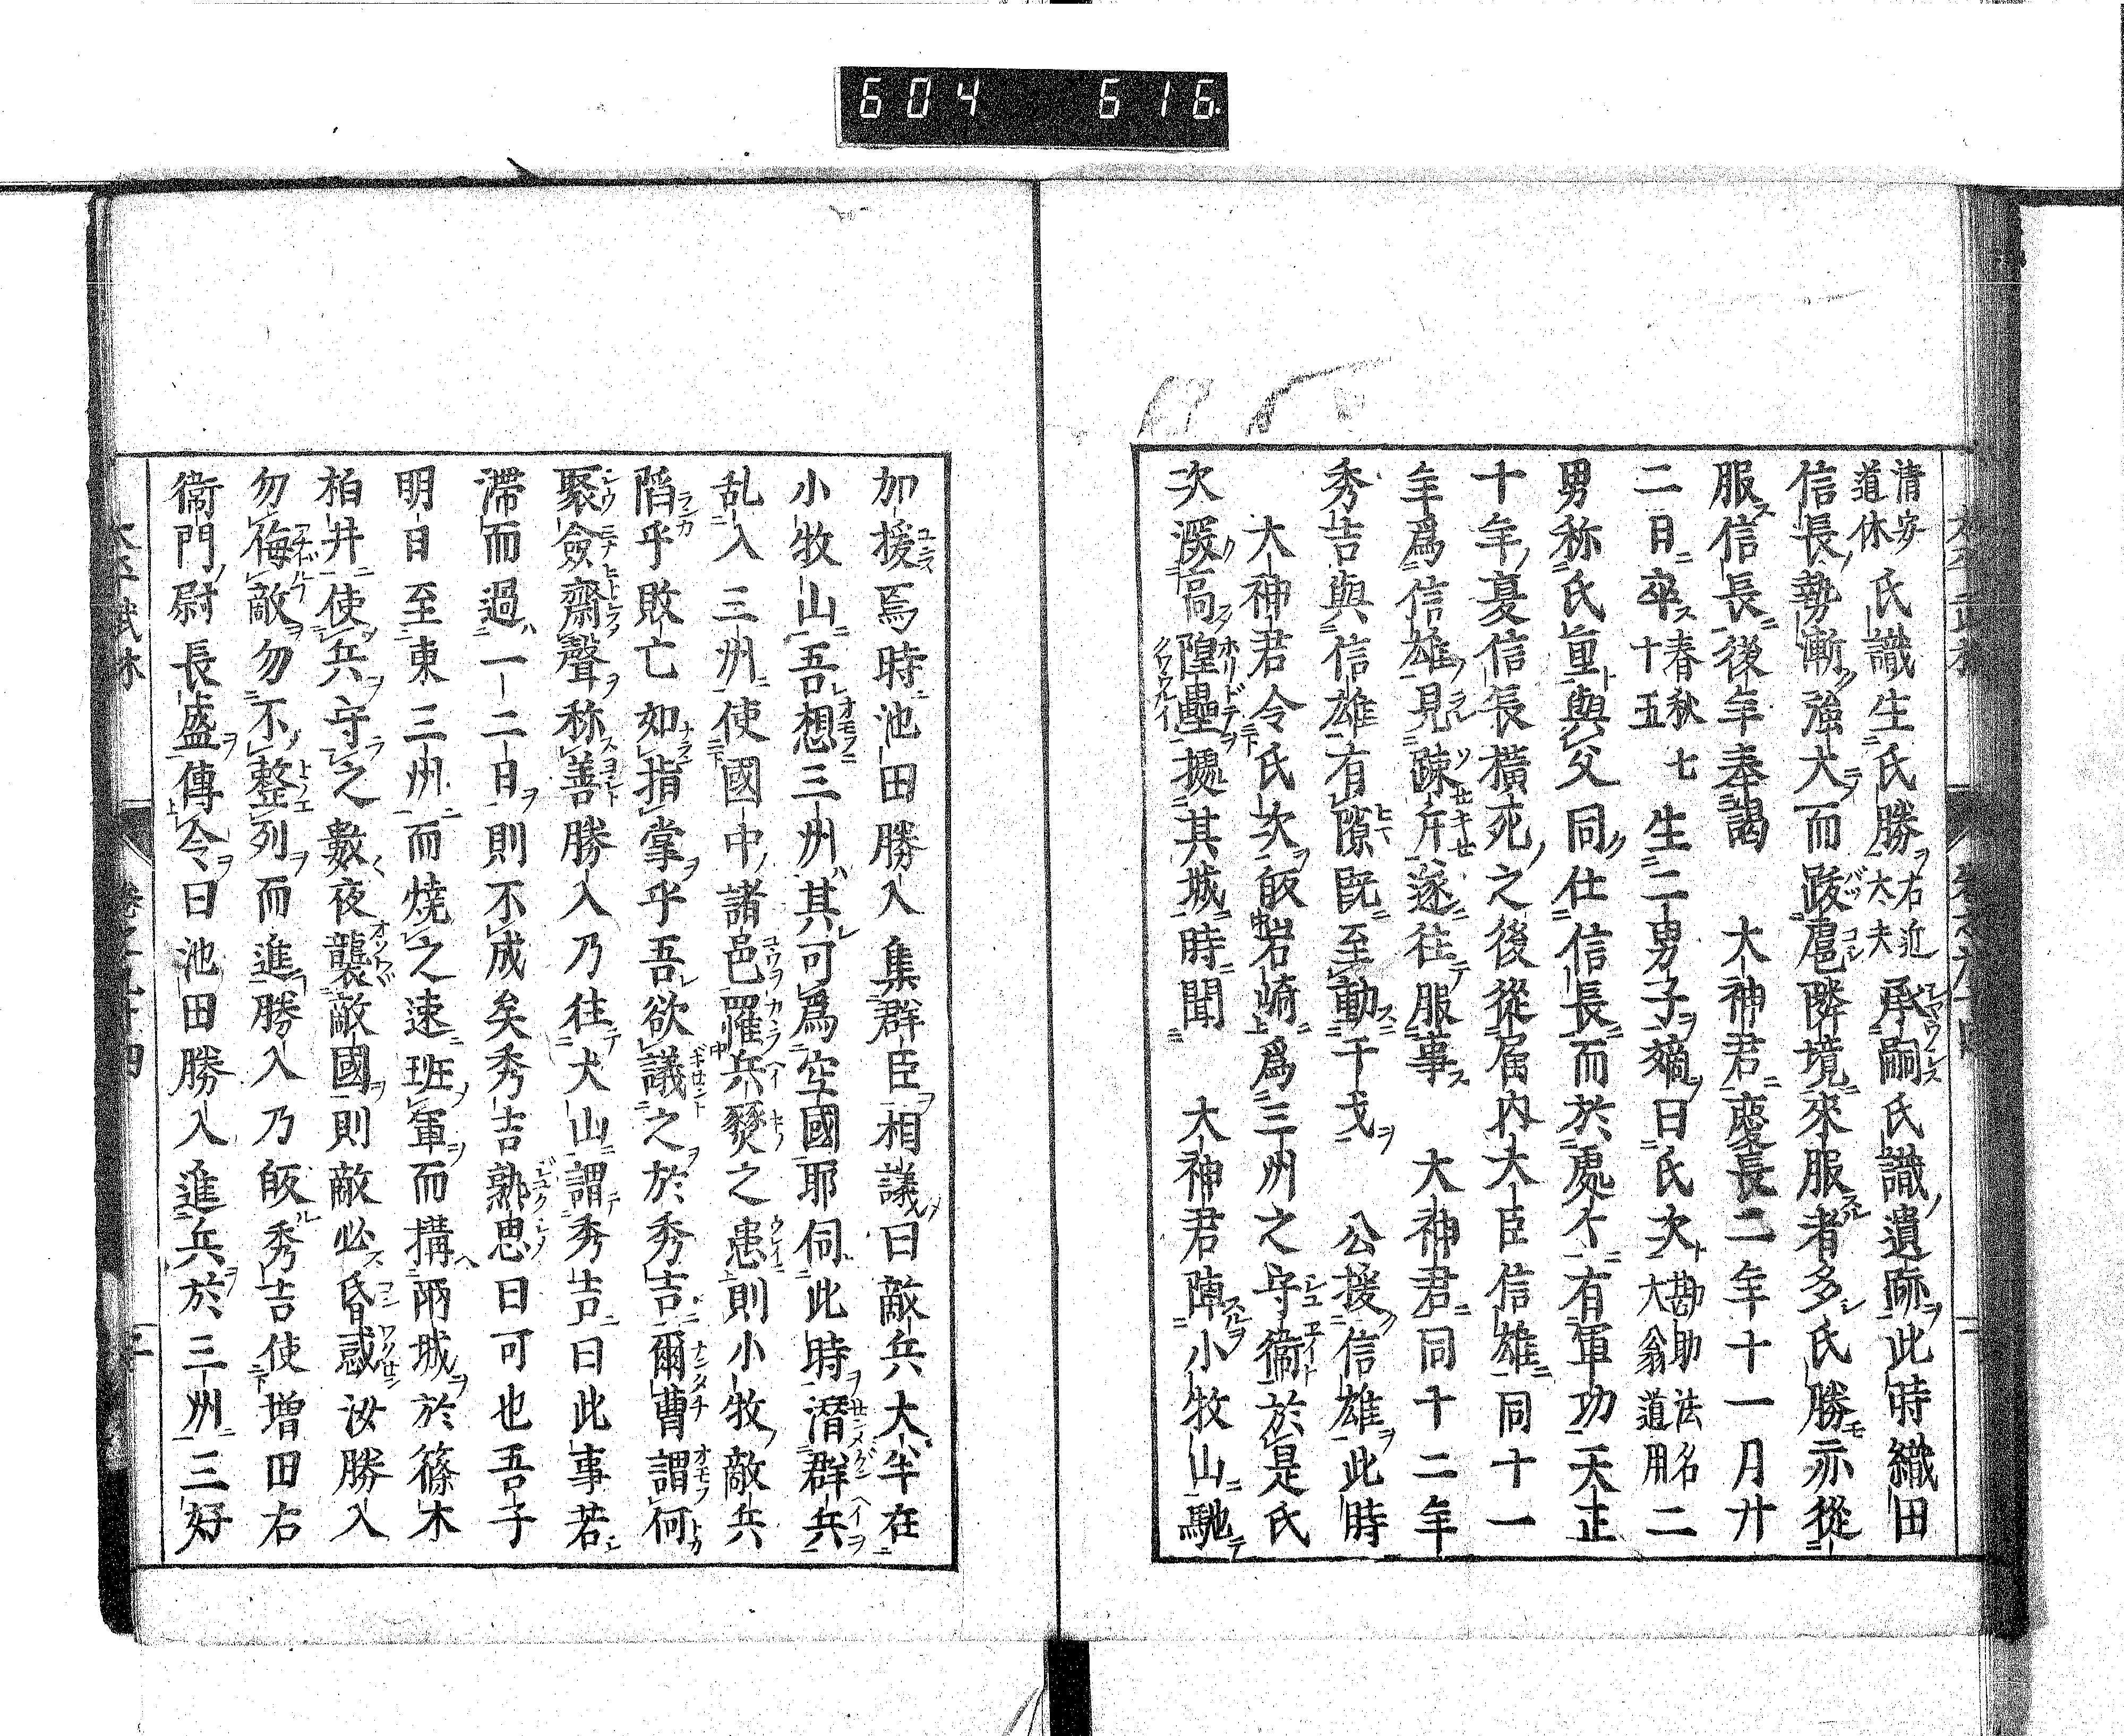 604 616
清安
道休
氏識生氏勝
右近
太夫
承嗣氏識遺跡此時織田
信長勢漸強大而跋扈隣境來服者多氏勝亦從
服信長後年奉謁 大神君慶長二年十一月廿
二日卒
春秋七
十五
生二男子嫡曰氏次
勘助法名
大翁道用
二
男称氏重與父同仕信長而於處々有軍功天正
十年夏信長横死之後從屬内大臣信雄同十一
年爲信雄見疎斥遂往服事 大神君同十二年
秀吉與信雄有隙既至動干戈 公援信雄此時
大神君令氏次皈岩崎爲三州之守衞於是氏
次濬高隍壘據其城時聞 大神君陣小牧山馳
加援焉時池田勝入集群臣相議曰敵兵大半在
小牧山吾想三州其可爲空國耶伺此時潜群兵
乱入三州使國中諸邑罹兵燹之患則小牧敵兵
陷乎敗亡如指掌乎吾欲議之於秀吉爾曹謂何
聚僉齋聲称善勝入乃往犬山謂秀吉曰此事若
滯而過一二日則不成矣秀吉熟思曰可也吾子
明日至東三州而燒之速班軍而搆兩城於篠木
柏井使兵守之數夜襲敵國則敵必昏惑汝勝入
勿侮敵勿不整列而進勝入乃皈秀吉使増田右
衞門尉長盛傳令曰池田勝入進兵於三州三好